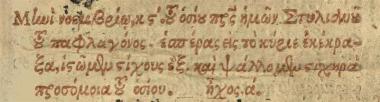 Μηνὶ νοεμβρίω, κϛ΄ τοῦ ὁσίου πρς ἡμῶν Στυλιανοῦ
τοῦ παφλαγόνος. ἑσπέρας εἰς τὸ κύριε ἐκέκρα-
ξα, ἱστῶμεν στίχους ἕξ. καὶ ψάλλομεν στιχηρὰ
προσόμοια τοῦ ὁσίου. ἦχος. α.